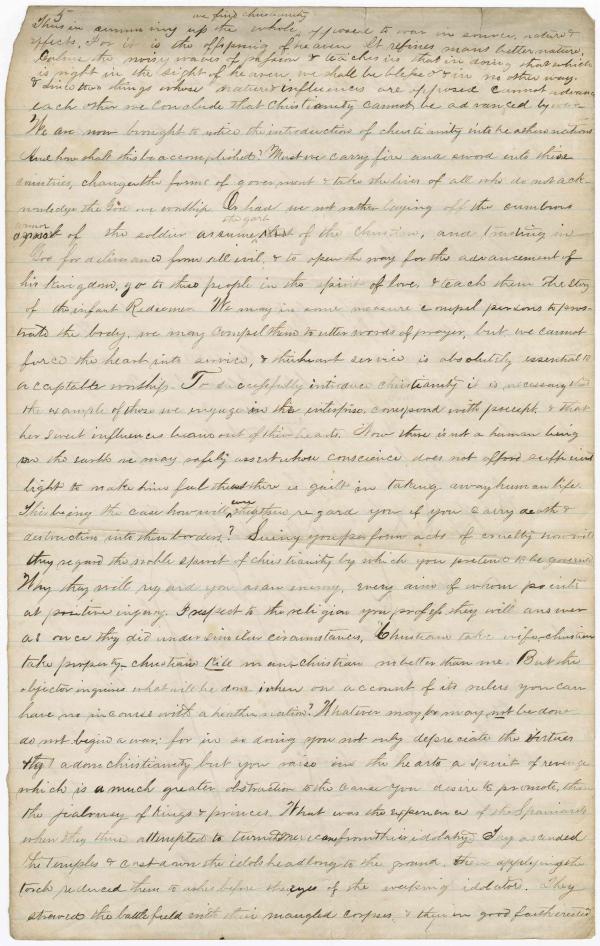 5
we find christianity
Thus in summing up the whole opposed to war in source, nature &
effects. For it is the offspring of heaven It refines mans better nature,
Calms the noisy waves of passion & teaches us that in doing that which
is right in the sight of heaven, we shall be blessed & in no other way.
& since two things whose nature & influences are opposed cannot advance
each other we conclude that Christianity cannot be advanced by war
We are now brought to notice the introduction of christianity into heathen nations
And how shall this be accomplished? Must we carry fire and sword into those
countries, change the forms of government & take the lives of all who do not ack-
nowledge the God we worship Or had we not rather laying off the cumbrous
armor of the soldier assume the garb of the Christian, and trusting in
God for deliverance from all evil, & to open the way for the advancement of
his kingdom, go to those people in the spirit of love, & teach them the story
of the infant Redeemer. We may in some measure compel persons to pros-
trate the body, we may compel them to utter words of prayer, but we cannot
force the heart into service, & the heart service is absolutely essential to
acceptable worship. To successfully introduce christianity it is necessary that
the example of those we engage in the enterprise, correspond with precept, & that
her sweet influences beam out of their hearts. Now there is not a human being
on the earth we may safely assert whose conscience does not afford sufficient
light to make him feel that there is guilt in taking away human life.
This being the case how will these regard you if you carry death &
destruction into their borders? Seeing you perform acts of cruelty how will
they regard the noble spirit of christianity by which you pretend to be governed
Why they will regard you as an enemy, every aim of whom points
at positive injury. Irespect to the religion you profess they will answer
as once they did under similar circumstances, Christian take wife—christian
take property—christian kill man—christian no better than me. But the
objector inquires what will be done when on account of its rulers you can
have no incourse with a heathen nation? Whatever may or may not be done
do not begin a war: for in so doing you not only depreciate the virtues
that adorn christianity but you raise in the hearts a spirit of revenge
which is a much greater obstruction to the cause you desire to promote, than
the jealousy of kings & princes. What was the experience of the Spaniards
when they there attempted to turn the Mexican from their idolatry They ascended
the temples & cast down the idols headlong to the ground, then applying the
torch reduced them to ashes before the eyes of the weeping idolator. They
strewed the battlefield with their mangled corpses, & then in good faith erected